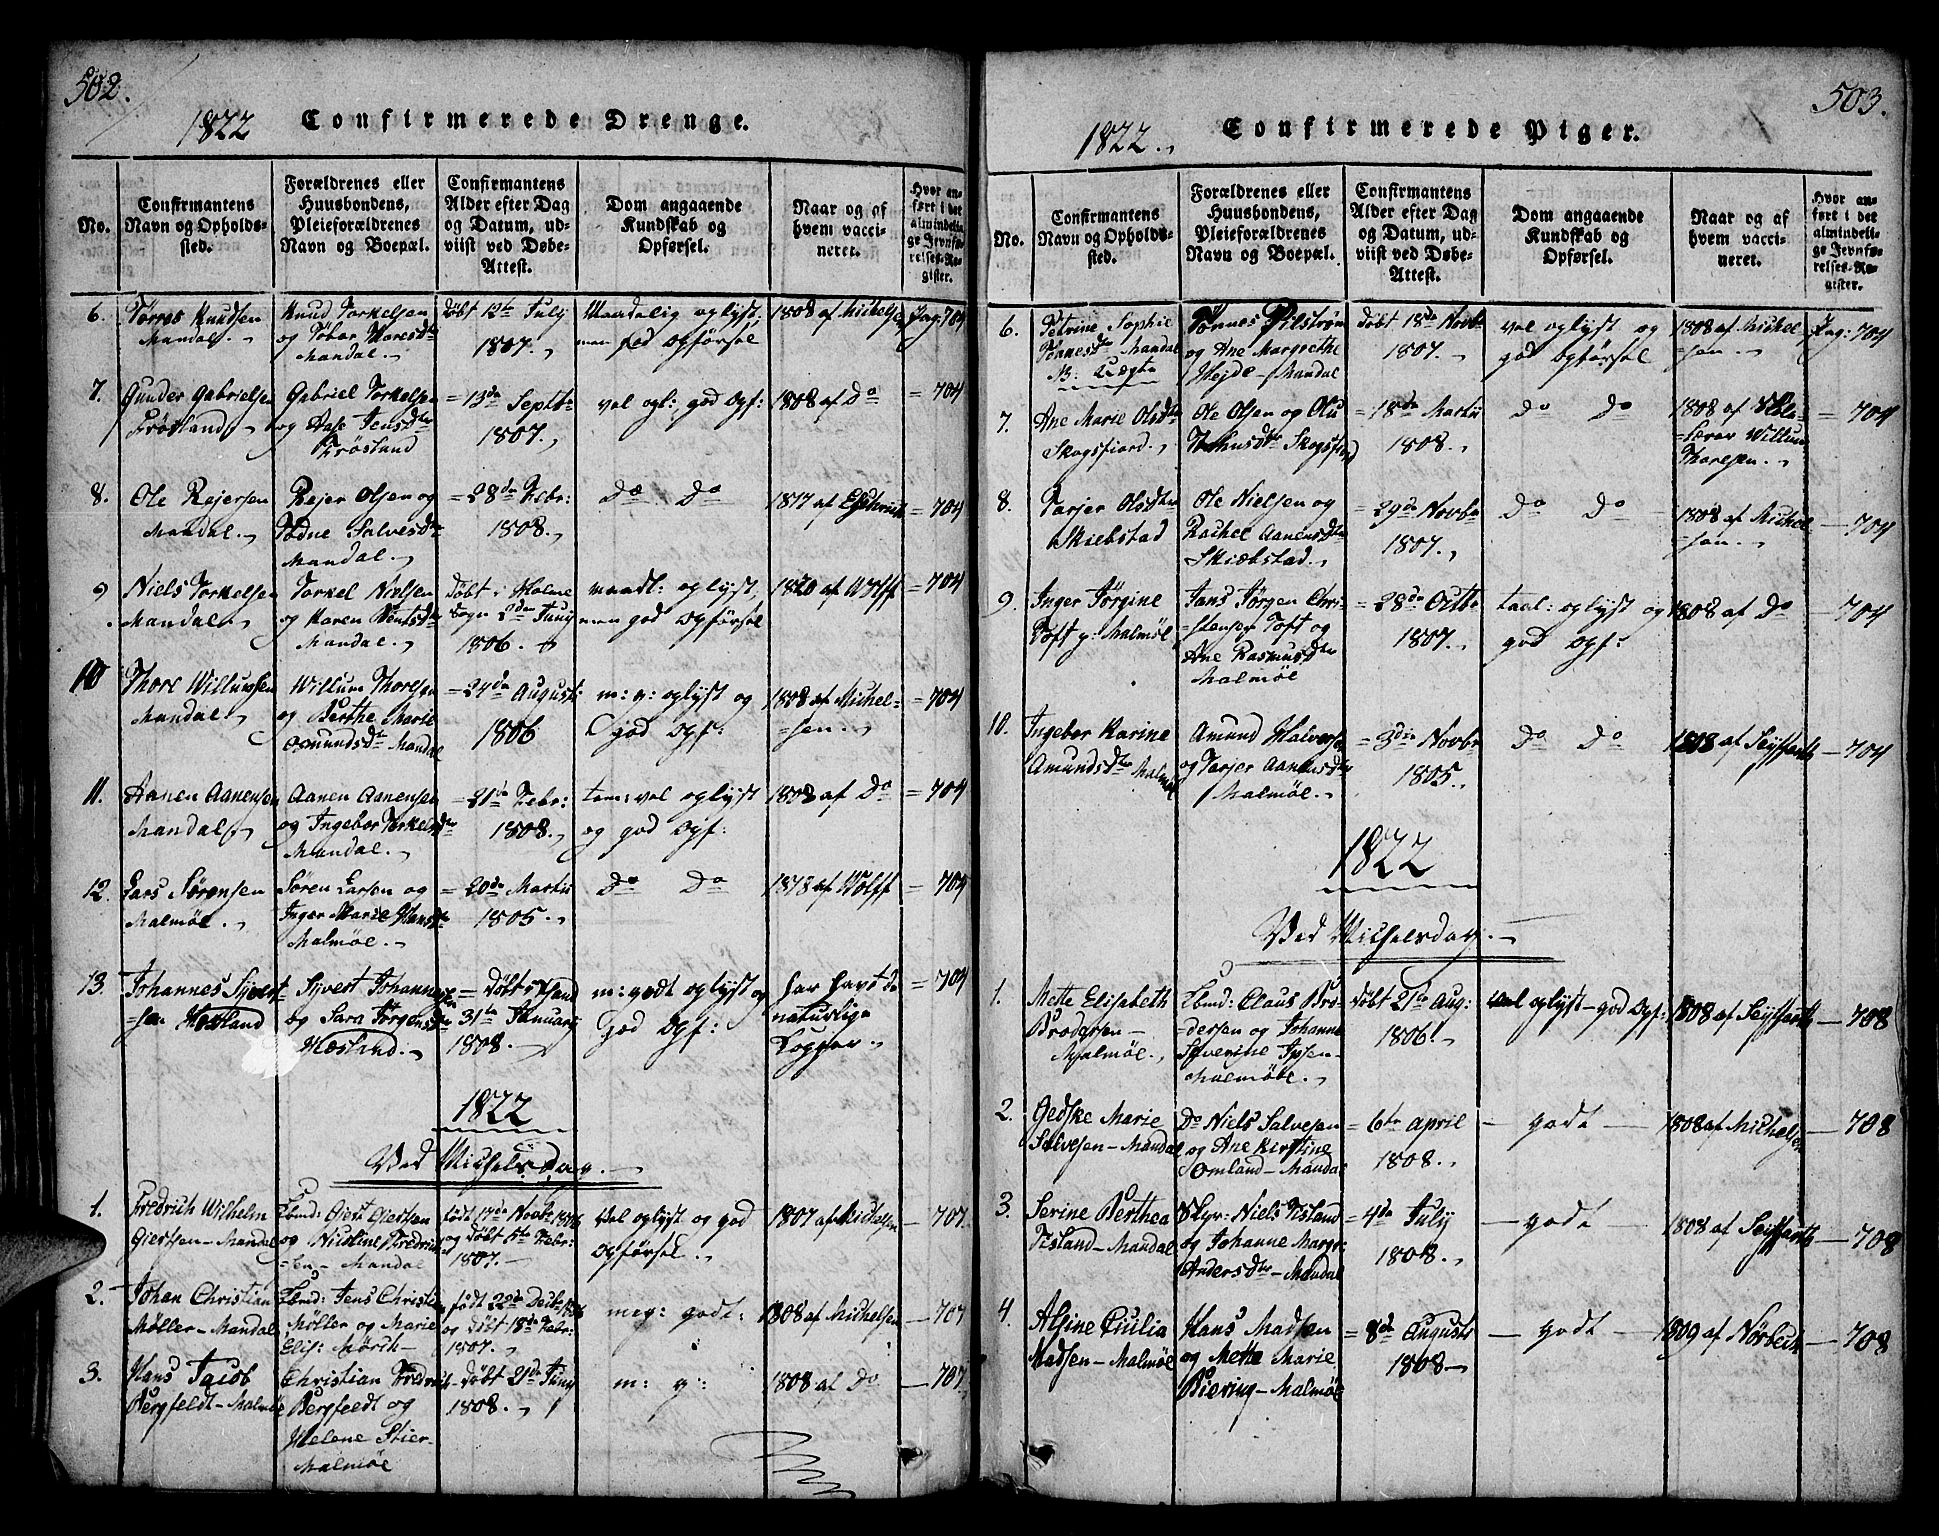 502.
1822 Confirmerede Drenge.
No.
Confirmantens
Navn og Opholds-
sted.
Forældrenes eller
Huusbondens,
Pleieforældrenes
Navn og Boepæl.
Confirmantens
Alder efter Dag
og Datum, ud-
viist ved Døbe-
Attest.
Dom angaaende
Kundskab og
Opførsel.
Naar og af
hvem vacci-
neret.
Hvor an-
ført i det
almindeli-
ge Jevnfø-
relses-Re-
gister.
6.
Tørres Knudsen
Mandal.
Knud Torkelsen
og Tobor Thoresdtr
Mandal.
Døbt 12te July
1807.
Maadelig oplyst
god Opførsel
1808 af Michelsen
Pag: 704
7.
Gunder Gabrielsen
Frøsland
Gabriel Torkelsen
og Aase Jensdtr
Frøsland
= 13de Septbr
1807.
vel opl: god Opf:
1808 af Do
= 704
8.
Ole Rejersen
Mandal.
Rejer Olsen og
Todne Salvesdtr
Mandal.
= 28de Febr:
1808.
Do Do
1817 af
= 704
9
Niels Torkelsen
Mandal.
Torkel Nielsen
og Karen Berntsdtr
Mandal.
Døbt i Holme
Sogn 2den Juny
1806.
maadl: oplyst,
men god Opførsel
1820 af Wolff
= 704
10
Thore Willumsen
Mandal
Willum Thoresen
og Berthe Marie
Osmundsdtr Mandal
= 24de August:
1806
m: g: oplyst og
god Opf:
1808 af Michel-
=sen.
= 704
11.
Aanen Aanensen
Mandal
Aanen Aanensen
og Ingebor Torkelsdtr
Mandal.
= 21de Febr:
1808.
tem: vel oplyst
og god Opf:
1808 af Do
= 704
12.
Lars Sørensen
Malmøe.
Søren Larsen og
Inger Marie Hansdtr
Malmøe.
= 20de Martii
1805.
Do Do
1818 af Wolff
= 704
13.
Johannes Syvert-
=sen Hæsland
Syvert Johannesen
og Sara Jørgensdtr
Hæsland.
= Døbt
31te January
1808.
m: godt oplyst og
God Opf:
har havt de
naturlige
Kopper.
= 704
1822
Ved Michelsdag.
1.
Fredrich Wilhelm
Giertsen – Mandal
Ebmd: Giert Giertsen
og Nicoline Fredrich-
=sen – Mandal
født 17de Novbr 1806
og Døbt 5te Febr:
1807.
Vel oplyst og god
Opførsel.
1807 af Michelsen
– 707.
2.
Johan Christian
Møller – Mandal
Ebmd: Jens Christian
Møller og Marie
Elis: Mørch –
født 22de Decbr 1806
og Døbt 18de Febr:
1807.
meg: godt:
1808 af Michelsen
– 707
3.
Hans Jacob
Bergfeldt – Malmøe
Christian Fredrich
Bergfeldt og
Helene Stier –
Malmøe
– Døbt 21de Juny
1808.
m: g:
1808 af Do
– 707
503.
1822. Confirmerede Piger.
No.
Confirmantens
Navn og Opholds-
sted.
Forældrenes eller
Huusbondens,
Pleieforældrenes
Navn og Boepæl.
Confirmantens
Alder efter Dag
og Datum, ud-
viist ved Døbe-
Attest.
Dom angaaende
Kundskab og
Opførsel.
Naar og af
hvem vacci-
neret.
Hvor an-
ført i det
almindeli-
ge Jevnfø-
relses-Re-
gister.
6.
Petrine Sophie
Tønnesdtr Mandal
NB. Uægte
Tønnes Pilstrøm
og Ane Margrethe
Hejde – Mandal
Døbt 18de Novbr
1807.
vel oplyst og
god opførsel
1808 af Michel-
=sen.
Pag: 704
7.
Ane Marie Olsdtr
Skogsfiord.
Ole Olsen og
Skogsfiord
= 18de Martii
1808.
Do Do
1808 af Skole-
=lærer Willum
Thoresen.
= 704
8.
Tarjer Olsdtr
Skiebstad
Ole Nielsen og
Rachel Aanensdtr
Skiebstad.
= 29de Novbr
1807.
Do Do
1808 af Michel-
=sen.
– 704
9.
Inger Jørgine
Toft p: Malmøe
Jens Jørgen Chri-
stensen Toft og
Ane Rasmusdtr
Malmøe
= 28de Octbr
1807.
taal: oplyst og
god Opf:
1808 af Do
– 704
10.
Ingebor Karine
Amundsdtr Malmøe
Amund Halversen
og Tarjer Aanensdtr
Malmøe.
= 3die Novbr
1805.
Do Do
1808 af Seyffarth
– 704
1822
Ved Michelsdag.
1.
Mette Elisabeth
Brodersen –
Malmøe.
Ebmd: Claus Bro-
dersen og Johanne
Severine Ipsen –
Malmøe.
Døbt 21de Aug:
1806.
Vel oplyst – god Opf:
1808 af Seyffarth
– 708
2.
Gedske Marie
Salvesen – Mandal
Do Niels Salvesen
og Ane Kirstine
Omland – Mandal
= 6te April
1808.
– godt –
1808 af Michelsen
– 708
3.
Serine Berthea
Fisland – Mandal
Skpr: Niels Fisland
og Johanne Margr:
Andersdtr – Mandal
= 4de July
1808.
– godt –
1808 af Seyffarth
– 708
4.
Alsine Cicilia
Madsen – Malmøe
Hans Madsen
og Mette Marie
Biering – Malmøe
= 8de Augusti
1808 –
– godt –
1809 af Nørbech
– 708